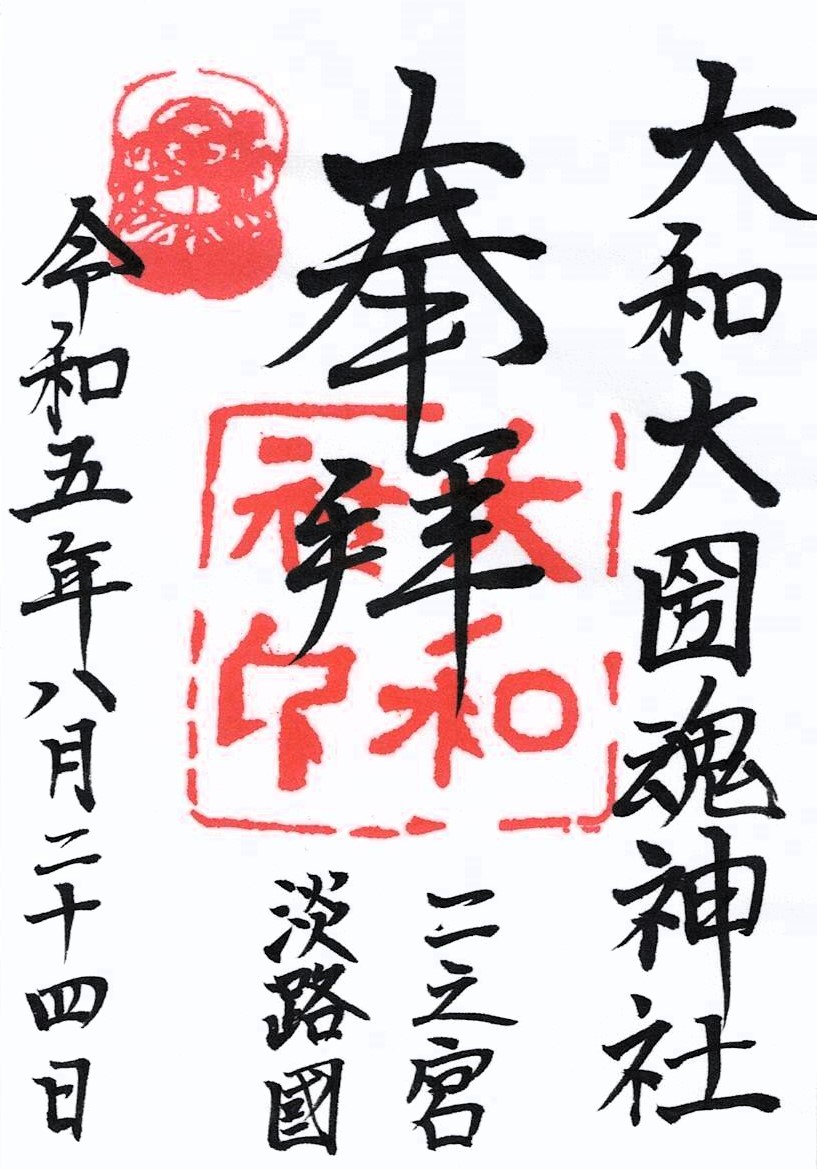 大和大圀魂神社
奉拝
大和
社印
二之宮
淡路國
令和五年八月二十四日